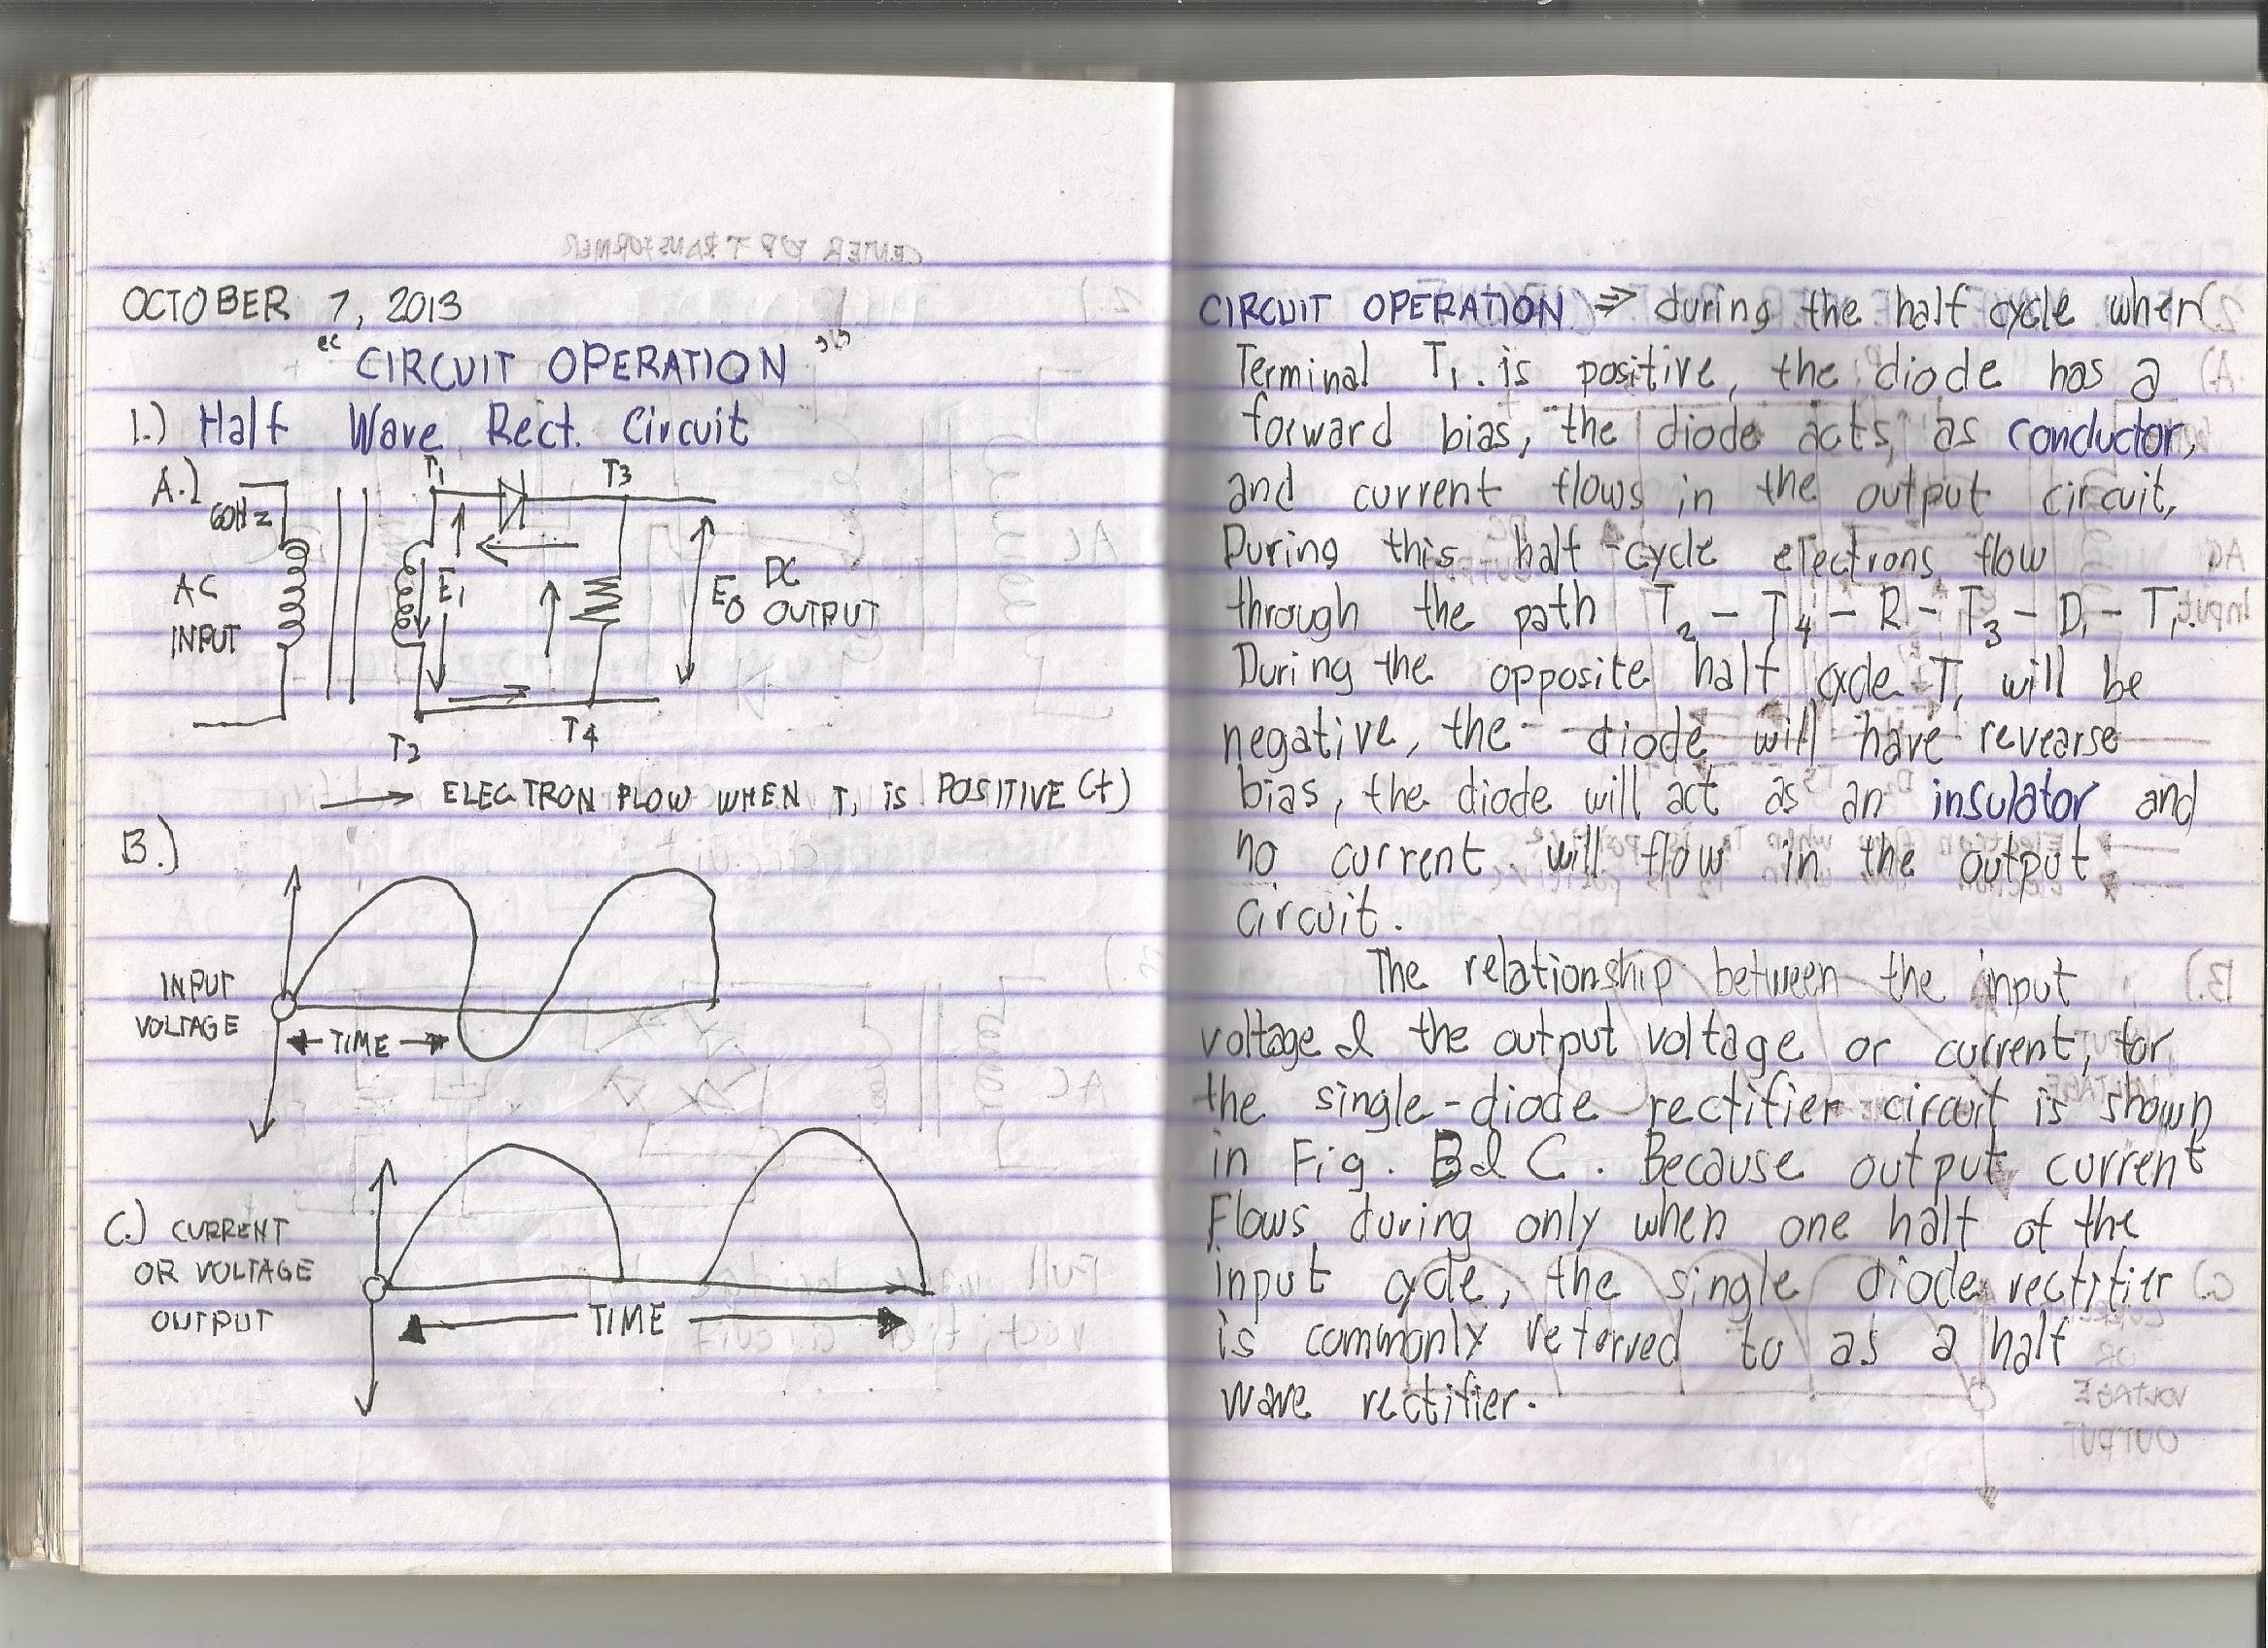 OCTOBER 7, 2013
" CIRCUIT OPERATION "
1.) Half Wave Rect. Circuit
A.)
T1
T3
60Hz
AC
INPUT
E1
EO
DC
OUTPUT
T2
T4
→ ELECTRON FLOW WHEN T1 is POSITIVE (+)
B.)
INPUT
VOLTAGE
TIME
C.) CURRENT
OR VOLTAGE
OUTPUT
TIME
CIRCUIT OPERATION ⇒ during the half cycle when
Terminal T1. is positive, the diode has a
forward bias, the diode acts, as conductor,
and current flows in the output circuit,
During this half-cycle electrons flow
through the path T2 - T4 - R - T3 - D1 - T1.
During the opposite half cycle T1 will be
negative, the diode will have revearse
bias, the diode will act as an insulator and
no current will flow in the output
circuit.
The relationship between the input
voltage & the output voltage or current, for
the single-diode rectifier circuit is shown
in Fig. B & C. Because output current
Flows during only when one half of the
input cycle, the single diode rectifier
is commonly referred to as a half
wave rectifier.